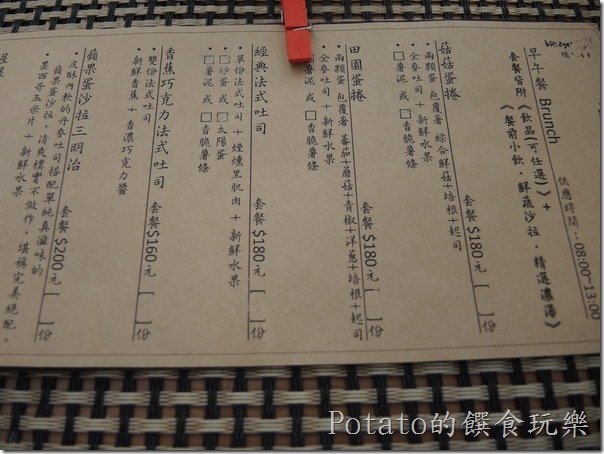 早午餐 Brunch
供應時間：08:00~13:00
套餐皆附《飲品(可任選)》+
《餐前小飲．鮮蔬沙拉．精選濃湯》
菇菇蛋捲 套餐 $180 元 [ ] 份
• 兩顆蛋 包覆著 綜合鮮菇+培根+起司
• 全麥吐司 + 新鮮水果
• □ 薯泥 或 □ 香脆薯條
田園蛋捲 套餐 $180 元 [ ] 份
• 兩顆蛋 包覆著 蕃茄+蘑菇+青椒+洋蔥+培根+起司
• 全麥吐司 + 新鮮水果
• □ 薯泥 或 □ 香脆薯條
經典法式吐司 套餐 $180 元 [ ] 份
• 單份法式吐司 + 煙燻里肌肉 + 新鮮水果
• □ 炒蛋 或 □ 太陽蛋
• □ 薯泥 或 □ 香脆薯條
香蕉巧克力法式吐司 套餐 $160 元 [ ] 份
• 雙份法式吐司
• 新鮮香蕉 + 香濃巧克力醬
蘋果蛋沙拉三明治 套餐 $200 元 [ ] 份
• 皮酥內軟的丹麥吐司搭配單純真滋味的
蘋果蛋沙拉，清爽樸實不做作，堪稱完美絕配。
• 墨西哥玉米片 + 新鮮水果
Potato的饌食玩樂